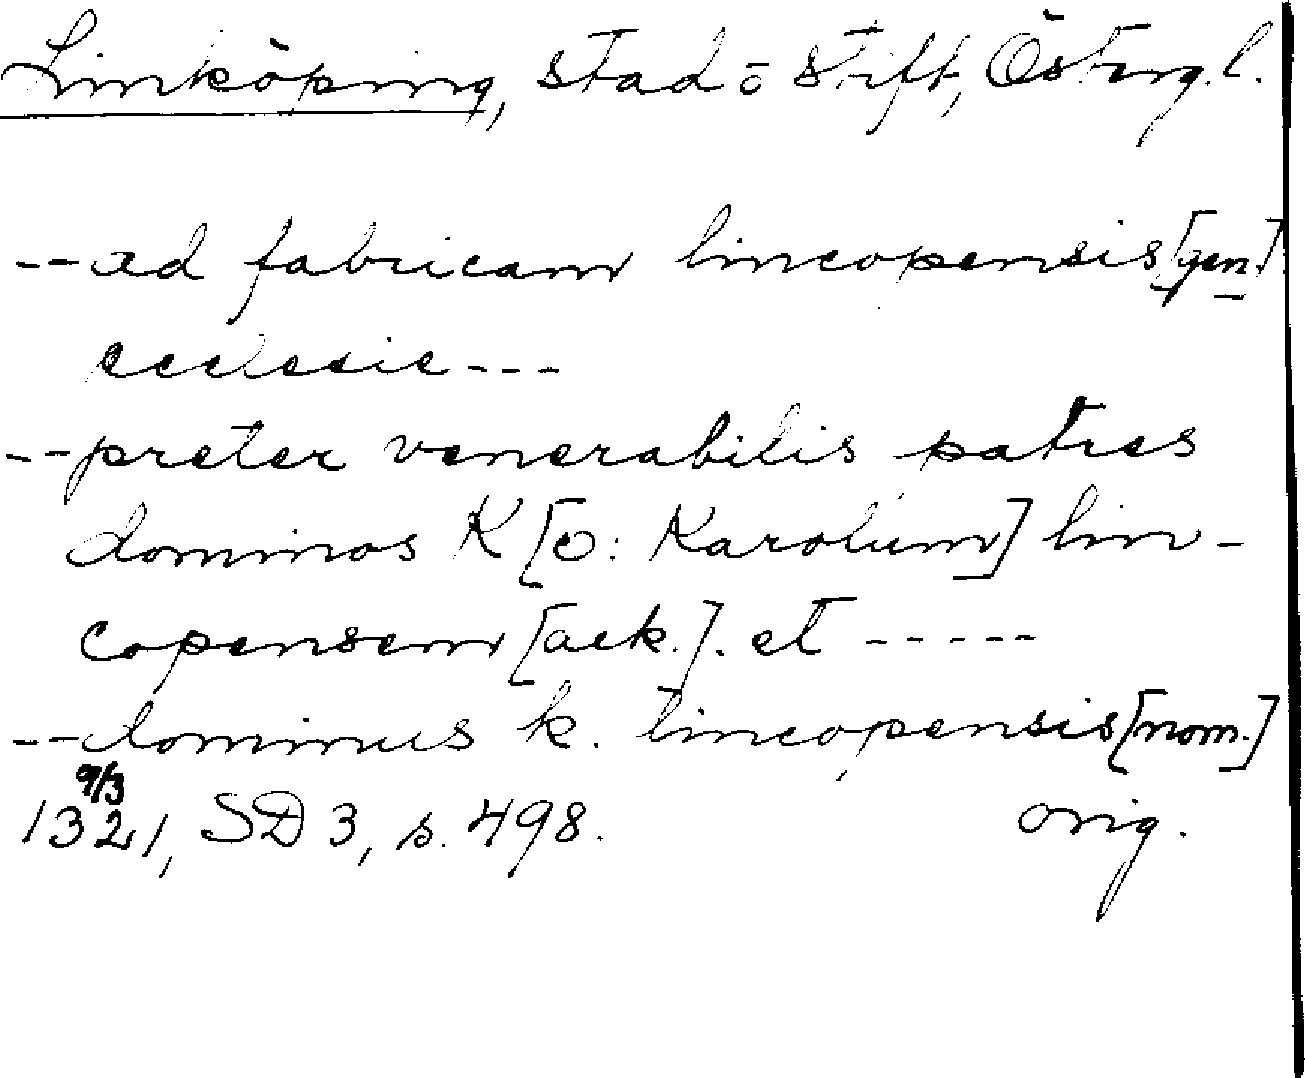 Linköping, stad o stift, Österg.l.
-- ad fabricam lincopensis [gen.]
ecclesie ---
-- preter venerabilis patres
dominos K [ɔ: Karolum] lin-
copensem [ack.]. et -----
-- dominus k. lincopensis [nom.]
9/3
1321, SD 3, s. 498. orig.